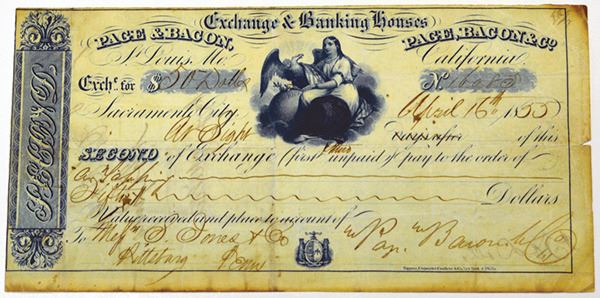 Exchange & Banking Houses
PAGE & BACON,
PAGE, BACON & Co.
St. Louis, Mo.
California
Exche. for $50 Dolls
No.
Sacramento City,
April 16th 1855
At Sight of this
SECOND of Exchange (first & third unpaid) pay to the order of
Fifty
Dollars
Value received and place to account of
To Messrs. Jones & Co
Page Bacon & Co
Pittsburg Penn
SECOND